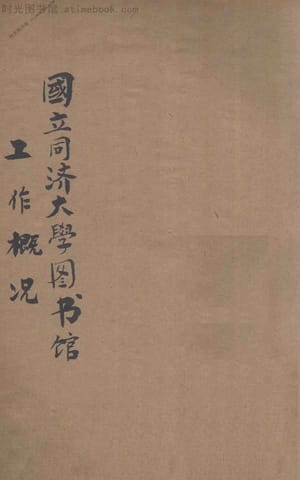 时光图书馆 www.atimebook.com
國立同济大學图书馆
工作概况